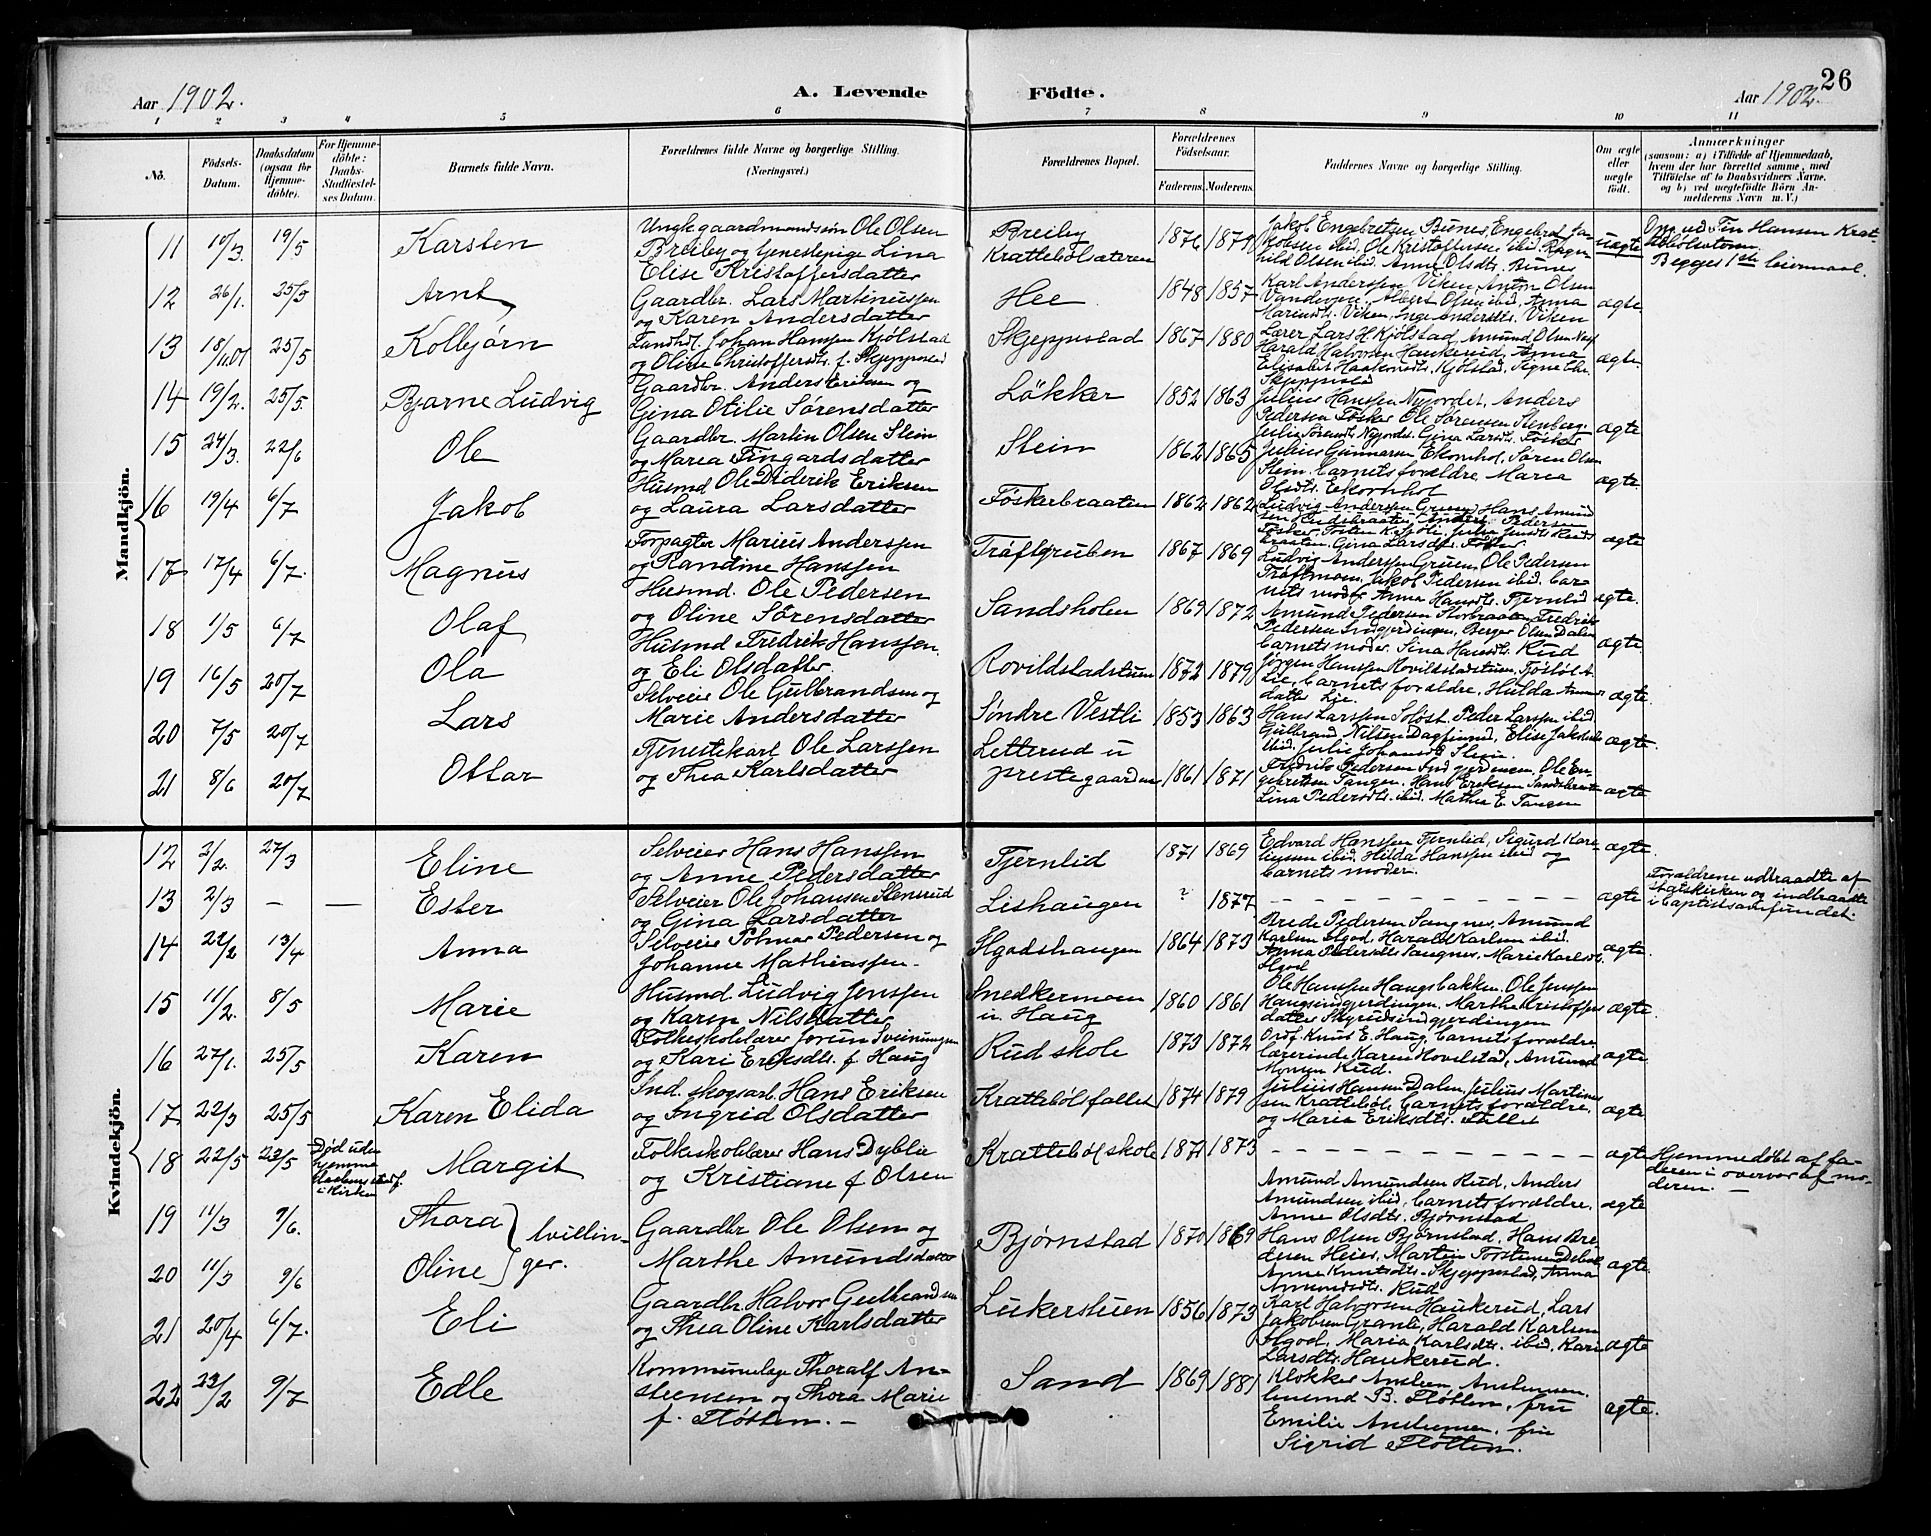 26
Aar 1902.
A. Levende
Födte.
Aar 1902.
1 2 3 4 5 6 7 8 9 10 11
No.
Födsels-
Datum.
Daabsdatum
(ogsaa for
Hjemme-
döbte).
For Hjemme-
döbte:
Daabs-
Stadfæstel-
ses Datum.
Barnets fulde Navn.
Forældrenes fulde Navne og borgerlige Stilling.
(Næringsvei.)
Forældrenes Bopæl.
Forældrenes
Födselsaar.
Faderens. Moderens.
Faddernes Navne og borgerlige Stilling.
Om ægte
eller
uægte
födt.
Anmærkninger
(saasom: a) i Tilfælde af Hjemmedaab,
hvem der har forrettet samme, med
Tilföielse af to Daabsvidners Navne,
og b) ved uægtefödte Börn An-
melderens Navn m. V.)
Mandkjön.
11 10/3 19/5 Karsten
Ungk gaardmandssøn Ole Olsen
Breiby og tjenestepige Lina
Elise Kristoffersdatter
Breiby
Krattebölsæteren
1876 1879
Jakob Engebretsen Bunes, Engebret Ja-
kobsen ibid, Ole Kristoffersen ibid. Ragn-
hild Olsen ibid. Anne Olsdtr. Bunes
uægte
Begges 1ste leiermaal.
12 26/1. 25/3 Arnt
Gaardbr. Lars Martinussen
og Karen Andersdatter
Hee
1848 1857
Karl Anderssen Viken, Anton Olsen
Albert Olsen ibid, Anna
ægte
13 18/11.01 25/5 Kolbjørn
Landhdl. Johan Hanssen Kjølstad
og Oline Christoffersdt. f. Skjeppstad
Skjeppstad
1867 1880
Lærer Lars H. Kjølstad, Amund Olsen
Harald Halvorsen Haukerud, Anna
Elisabet Haakonsdt. Kjölstad, Signe Chr.
Skjeppstad
ægte
14 19/2. 25/5. Bjarne Ludvig
Gaardbr. Anders Eriksen og
Gina Otilie Sørensdatter
Løkker
1852 1863
Julius Hanssen Nyjordet, Anders
Pedersen Fösker, Ole Sørensen Stenberg.
Julie Sörensdt. Nyjordet. Gina Larsdt. Fösker
ægte
15 24/3. 22/6 Ole
Gaardbr. Martin Olsen Stein
og Marea Fingarsdatter
Stein
1862 1865
Julius Gunnarsen Ekornhol, Søren Olsen
Stein. barnets forældre, Maria
Olsdt. Ekornhol
ægte
16 19/4 6/7 Jakob
Husmd Ole Diderik Eriksen
og Laura Larsdatter
Föskerbraaten
1862 1862
Ludvig Anderssen Gruen, Hans Amund-
ægte
17 17/4 6/7. Magnus
Forpagter Marius Anderssen
og Randine Hanssen
Tröftgruben
1867 1869
Ludvig Anderssen Gruen, Ole Pedersen
Tröftmoen, Jakob Pedersen ibid. bar-
nets moder Anna Hansdt. Tjernlid
ægte.
18 1/5 6/7 Olaf
Husmd. Ole Pedersen
og Oline Sørensdatter
Sandsholen
1869 1872
Amund Pedersen Storbraaten, Fredrik
Pedersen Indgjerdingen, Berger Olsen Dalen
barnets moder. Sina Hansdt. Rud
ægte
19 16/5 20/7 Ola
Husmd Fredrik Hanssen
og Eli Olsdatter.
Rovildstadstuen
1872 1879
Jørgen Hanssen Rovildstadstuen,
Lie, barnets forældre, Hulda
datter Lie.
ægte
20 7/5 20/7 Lars
Selveier Ole Gulbrandsen og
Marie Andersdatter
Søndre Vestli
1853 1863
Hans Larssen Soløst. Peder Larssen ibid
Gulbrand Nilsen Dagfinrud, Elise Jakobsdt.
ibid. Julie Johansdt. Stein
ægte.
21 8/6 20/7 Ottar
Tjenestekarl Ole Larssen
og Thea Karlsdatter
Letterud u
prestegaarden
1861 1871
Fredrik Pedersen Indgjerdingen. Ole En-
gebretsen Tangen. Hans Eriksen Sandsbraaten
Lina Pedersdt. ibid. Mathea E. Tangen
ægte
Kvindekjön.
12 2/2. 27/3 Eline
Selveier Hans Hanssen
og Anne Pedersdatter
Tjernlid
1871 1869
Edvard Hanssen Tjernlid, Sigurd Kare-
liussen ibid. Hilda Hanssen ibid og
barnets moder.
ægte.
13 2/3 – — Ester
Selveier Ole Johansen Slensrud
og Gina Larsdatter
Lishaugen
? 1877
– – – – – – – –
ægte
Forældrene udtraadte af
statskirken og indtraadte
i baptistsamfundet.
14 22/2 13/4 Anna
Selveier Polmar Pedersen og
Johanne Mathiassen.
Elgodshaugen
1864 1873
Brede Pedersen Sangnes, Amund
Karlsen Elgod, Harald Karlsen ibid.
Anna Pedersdt. Sangnes, Marie Karlsdt.
Elgod
ægte.
15 11/2. 8/5 Marie
Husmd. Ludvig Jenssen
og Karen Nilsdatter
Snedkermoen
u. Haug
1860 1861
Ole Hanssen Haugsbakken. Ole Jenssen
Haugsindgjerdingen. Marthe Kristoffers
datter Skyrudsindgjerdingen
ægte.
16 27/1. 25/5 Karen
Folkeskolelærer Jorun Sveinungsen
og Kari Eriksdt. f. Haug
Rud skole
1873 1872
Ordf. Knut E. Haug, barnets forældre,
lærerinde Karen Hovelstad, Amund
Monsen Rud.
ægte
17 22/3 25/5 Karen Elida
Ind. skogsarb. Hans Eriksen
og Ingrid Olsdatter
Krattebölsfallet
1874 1879
Julius Hansen Dalen, Julius Martinus-
sen Kratteböl. barnets forældre.
og Maria Eriksdt. Fallet
ægte.
18 22/5 23/5
Död uden
hjemme
daabens stadf.
i kirken
Margit
Folkeskolelærer Hans Dyblie
og Kristiane f. Olsen
Kratteböl skole
1871 1873
– – – – – – – –
ægte
Hjemmedøbt af fa-
deren i overvær af mo-
deren. —
19 11/3 9/6. Thora } tvillin-
20 11/3 9/6 Oline } ger.
Gaardbr Ole Olsen og
Marthe Amundsdatter
Bjørnstad
1870 1869
Amund Amundsen Rud, Anders
Amundsen ibid, barnets forældre,
Anne Olsdt. Bjørnstad
ægte
Hans Olsen Bjørnstad, Hans Bre-
desen Heier, Martin Torstensen
Anne Knutsdt. Skjeppestad, Anna
Amundsdt. Rud
ægte.
21 20/4 6/7. Eli
Gaardbr Halvor Gulbrandsen
og Thea Oline Karlsdatter
Lukerstuen
1856 1873
Karl Halvorsen Haukerud, Lars
Jakobsen Granli, Harald Karlsen
Elgod, Maria Karlsdt. ibid. Kari
Larsdt. Haukerud.
ægte
22 23/2 9/7 Edle
Kommunelæge Thoralf An-
steensen og Thora Marie
f. Fløtten. –
Sand
1869 1881
Klokker Ansteen Ansteensen.
B. Fløtten, fru
Emilie Ansteensen. frk
Sigrid Fløtten.
ægte.